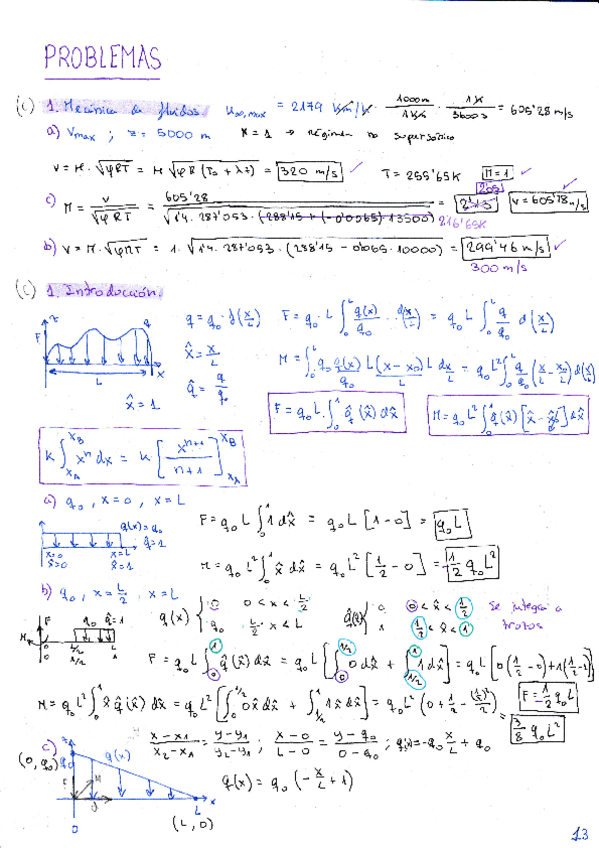 PROBLEMAS
(C) 1. Mecánica de fluidos. u∞,max = 2179 km/h · 1000m/1km · 1h/3600s = 605'28 m/s
a) Vmax ; z = 5000 m M = 1 → régimen no supersónico
v = M · √(φRT) = M √(φR(T0 + λz)) = 320 m/s ✓ T = 255'65K M=1 ✓
c) M = v/√(φRT) = 605'28/√(1'4 · 287'053 · (288'15 + (-0'0065) · 13500)) = 2'13 2'05 v = 605'28 m/s ✓
216'65K
b) v = M · √(φRT) = 1 · √(1'4 · 287'053 · (288'15 − 0'065 · 10000)) = 299'46 m/s ✓
300 m/s
(C) 1. Introducción.
z q F L x
q = q0 · f(x/L) F = q0 · L ∫₀ᴸ q(x)/q0 · dx/L = q0 L ∫₀ᴸ q/q0 d(x/L)
x̂ = x/L M = ∫₀ᴸ q0 q(x)/q0 L(x−x0) L dx/L = q0 L² ∫₀ᴸ q/q0 (x/L − x0/L) d(x/L)
q̂ = q/q0
x̂ = 1 F = q0 L · ∫₀¹ q̂(x̂) dx̂ M = q0 L² ∫₀¹ q̂(x̂) [x̂ − x̂0] dx̂
k ∫ xⁿ dx = k [xⁿ⁺¹/(n+1)] xB xA
a) q0 , x = 0 , x = L
q(x) = q0 q̂ = 1 F = q0 L ∫₀¹ 1 dx̂ = q0 L [1−0] = q0 L
x=0 x=L
x̂=0 x̂=1 M = q0 L² ∫₀¹ x̂ dx̂ = q0 L² [1/2 − 0] = 1/2 q0 L²
b) q0 , x = L/2 , x = L
q(x) { 0 0 < x < L/2 q0 L/2 < x < L q̂(x̂) { 0 0 < x̂ < 1/2 1 1/2 < x̂ < 1 se integra a trozos
F q0 q̂=1 M 0 L/2 L 1/2 1
F = q0 L ∫₀¹ q̂(x̂) dx̂ = q0 L [∫₀^1/2 0 dx̂ + ∫_1/2^1 1 dx̂] = q0 L [0(1/2 − 0) + 1(1 − 1/2)]
F = 1/2 q0 L
M = q0 L² ∫₀¹ x̂ q̂(x̂) dx̂ = q0 L² [∫₀^1/2 0x̂ dx̂ + ∫_1/2^1 1x̂ dx̂] = q0 L² (0 + 1/2 − (1/2)²/2) = 3/8 q0 L²
c) (x − x1)/(x2 − x1) = (y − y1)/(y2 − y1) ; (x − 0)/(L − 0) = (y − q0)/(0 − q0) ; q(x) = −q0 x/L + q0
(0, q0) q0 q(x) F M L x
q(x) = q0 (−x/L + 1)
0 (L, 0)
13